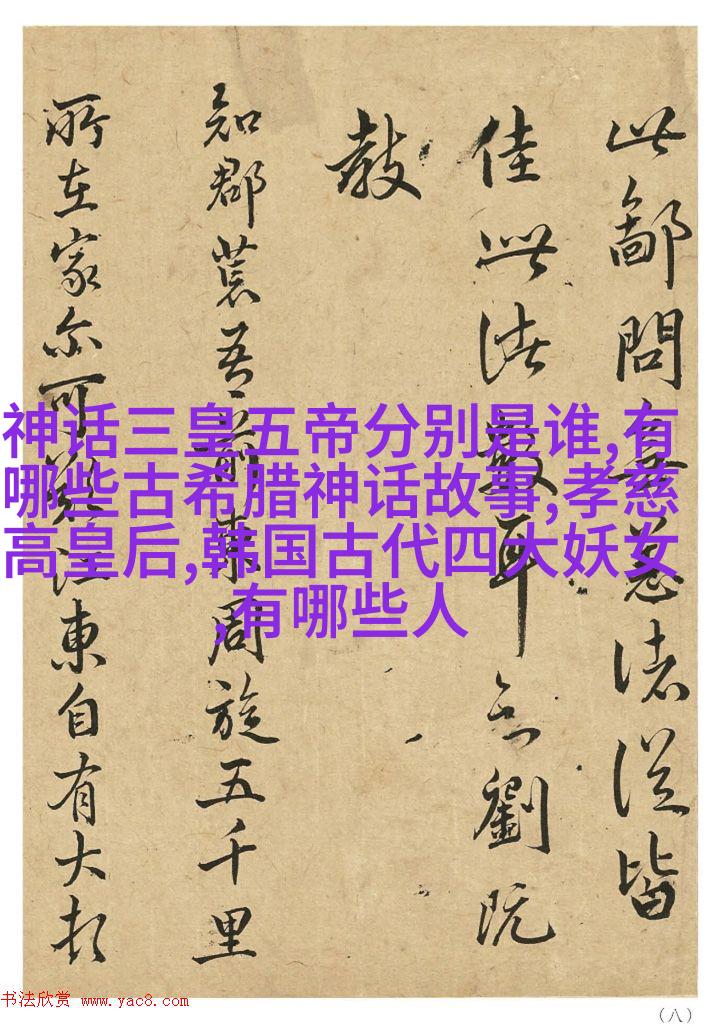 此鄙問無恙諸從皆
佳此諸數耳劉既
教
知郡荒吾前東周旋五千里
所在家亦可歎江東自有大頓
神话三皇五帝分别是谁,有
哪些古希腊神话故事,孝慈
高皇后,韩国古代四大妖女
,有哪些人
书法欣赏 www.yac8.com
(八)